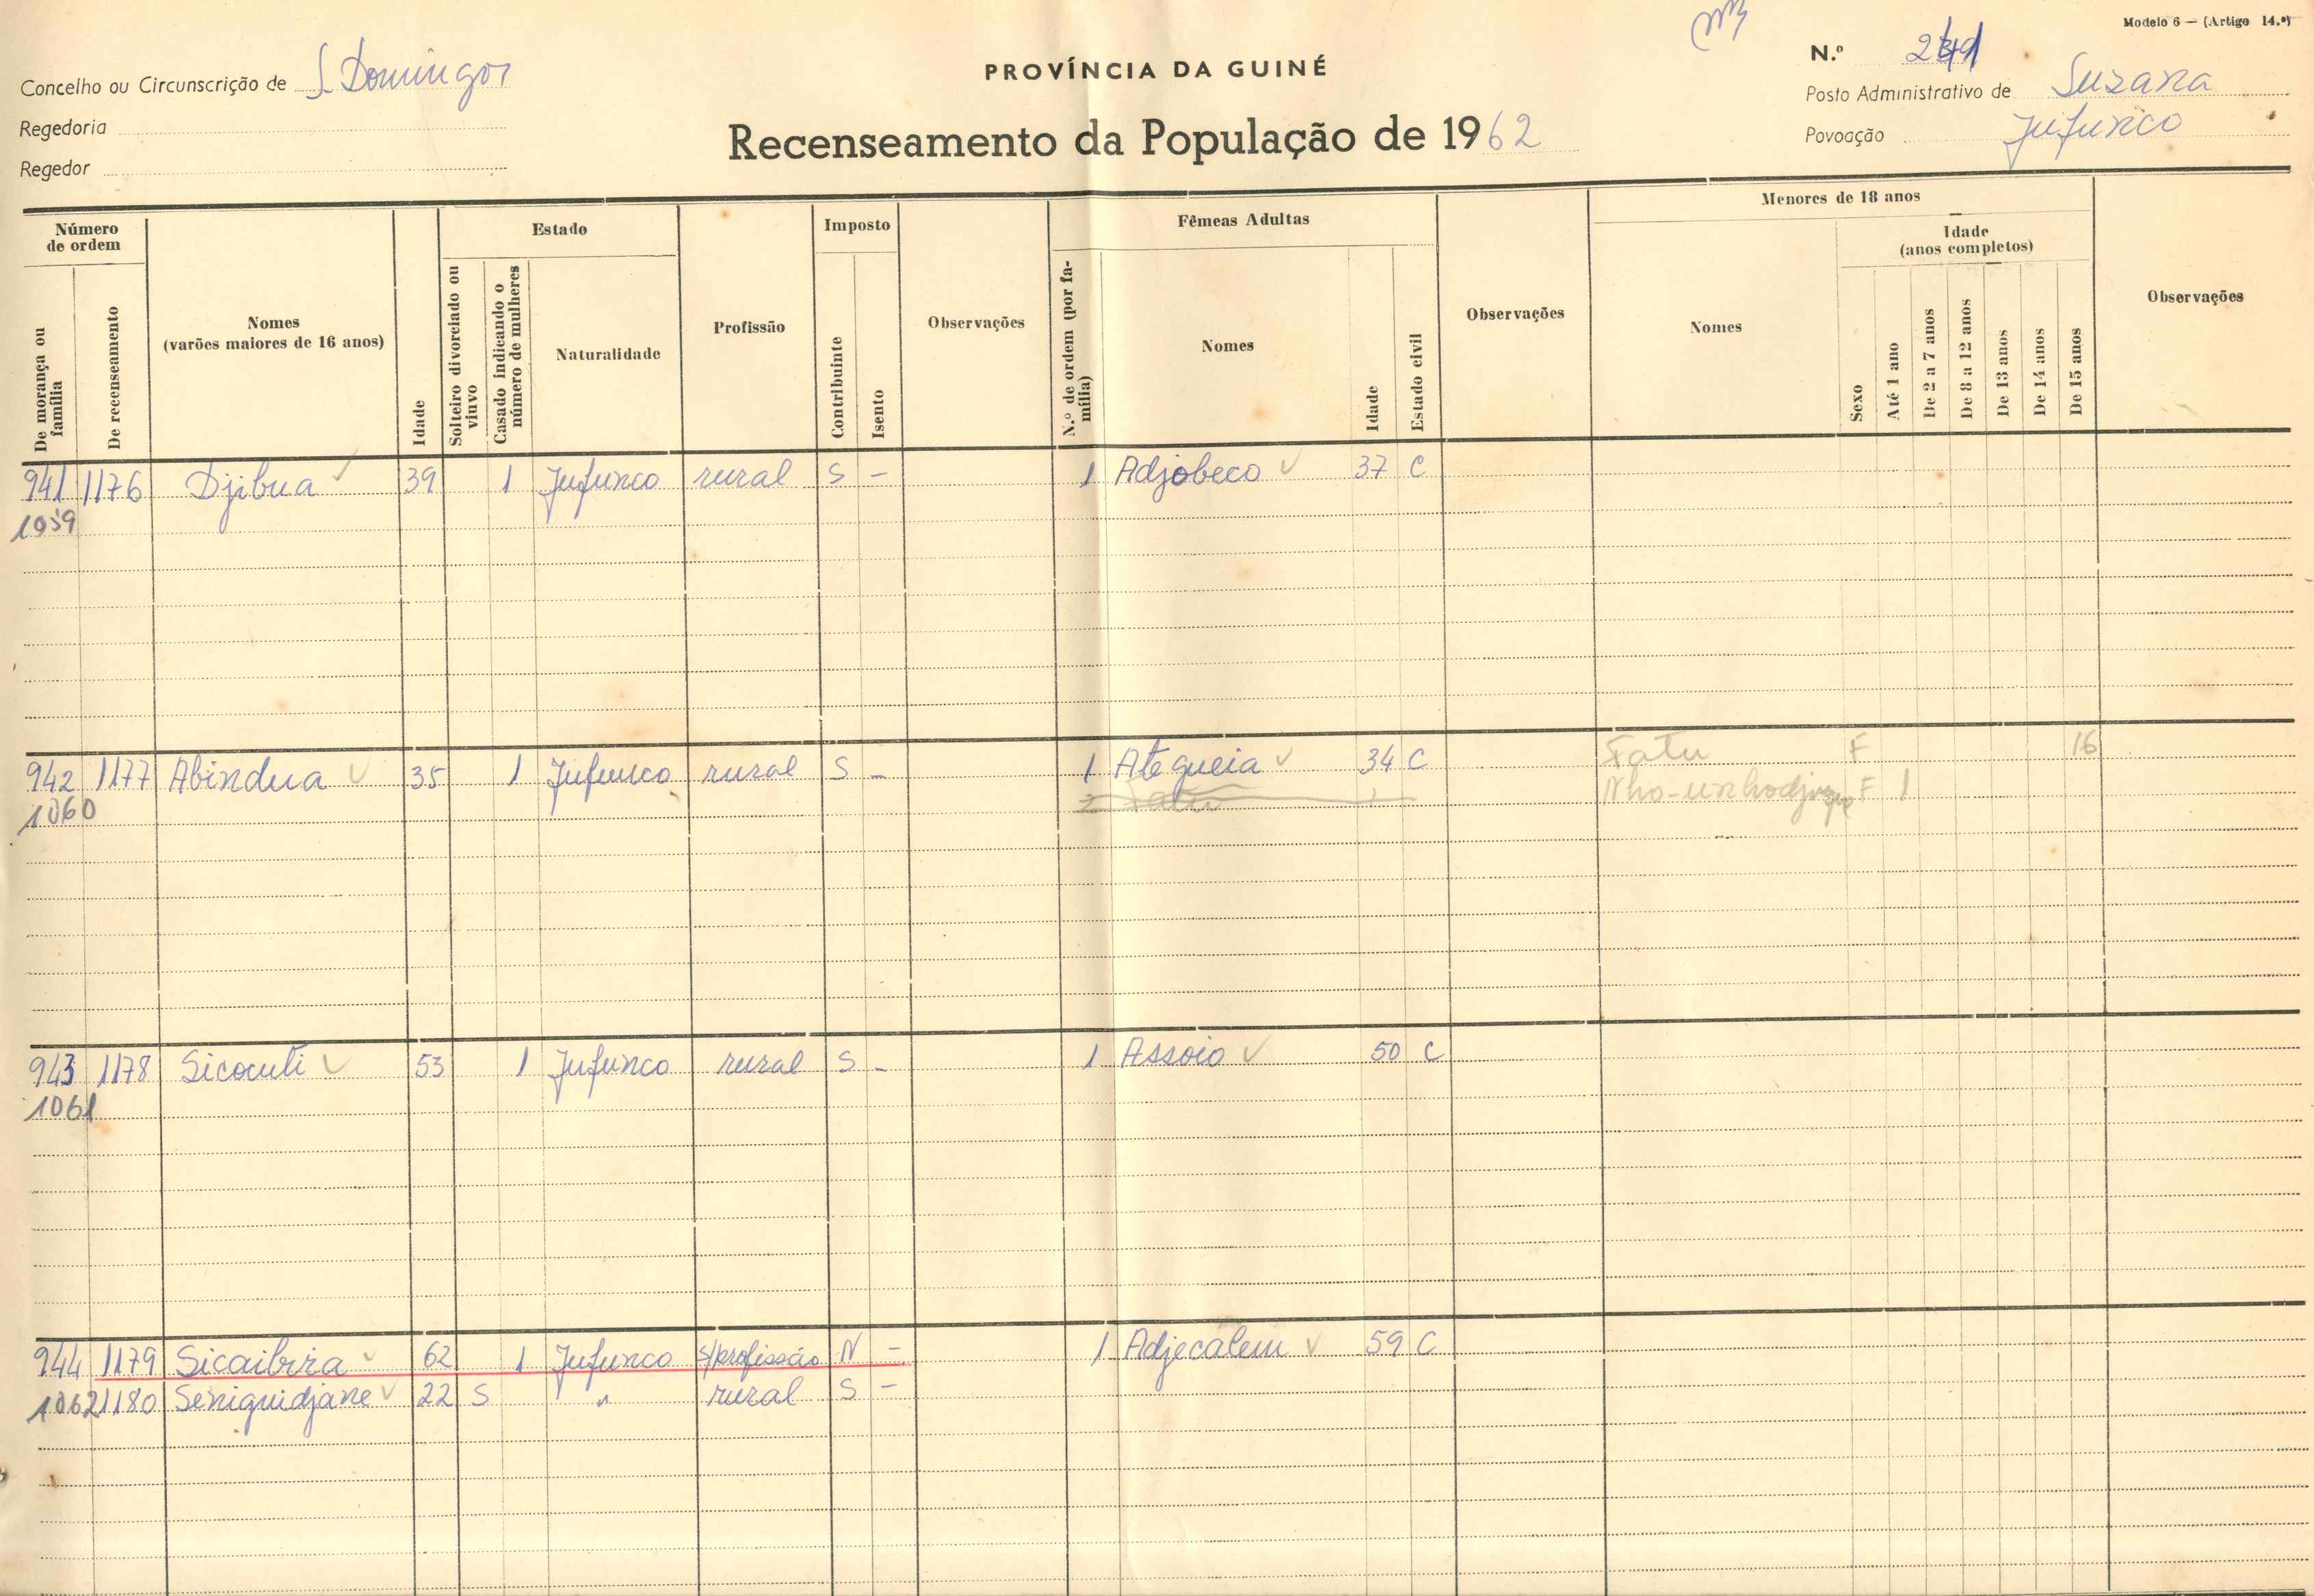 Modelo 6 — (Artigo 14.º)
Concelho ou Circunscrição de S. Domingos
PROVÍNCIA DA GUINÉ
N.º
Posto Administrativo de Suzana
Regedoria
Recenseamento da População de 1962
Povoação Jufunco
Regedor
Número de ordem
De morança ou família
De recenseamento
Nomes
(varões maiores de 16 anos)
Idade
Estado
Solteiro divorciado ou viuvo
Casado indicando o número de mulheres
Naturalidade
Profissão
Imposto
Contribuinte
Isento
Observações
Fêmeas Adultas
N.º de ordem (por família)
Nomes
Idade
Estado civil
Observações
Menores de 18 anos
Nomes
Idade
(anos completos)
Sexo
Até 1 ano
De 2 a 7 anos
De 8 a 12 anos
De 13 anos
De 14 anos
De 15 anos
Observações
941 1176 Djibua 39 1 Jufunco rural S - 1 Adjobeco 37 C
1059
942 1177 Abindua 35 1 Jufunco rural S - 1 Ategueia 34 C Fatu F 16
1060 2 Fatu F 1
943 1178 Sicouti 53 1 Jufunco rural S - 1 Assoio 50 C
1061
944 1179 Sicaibira 62 1 Jufunco s/profissão N - 1 Adjecalem 59 C
1062 1180 Seniguidjane 22 S " rural S -